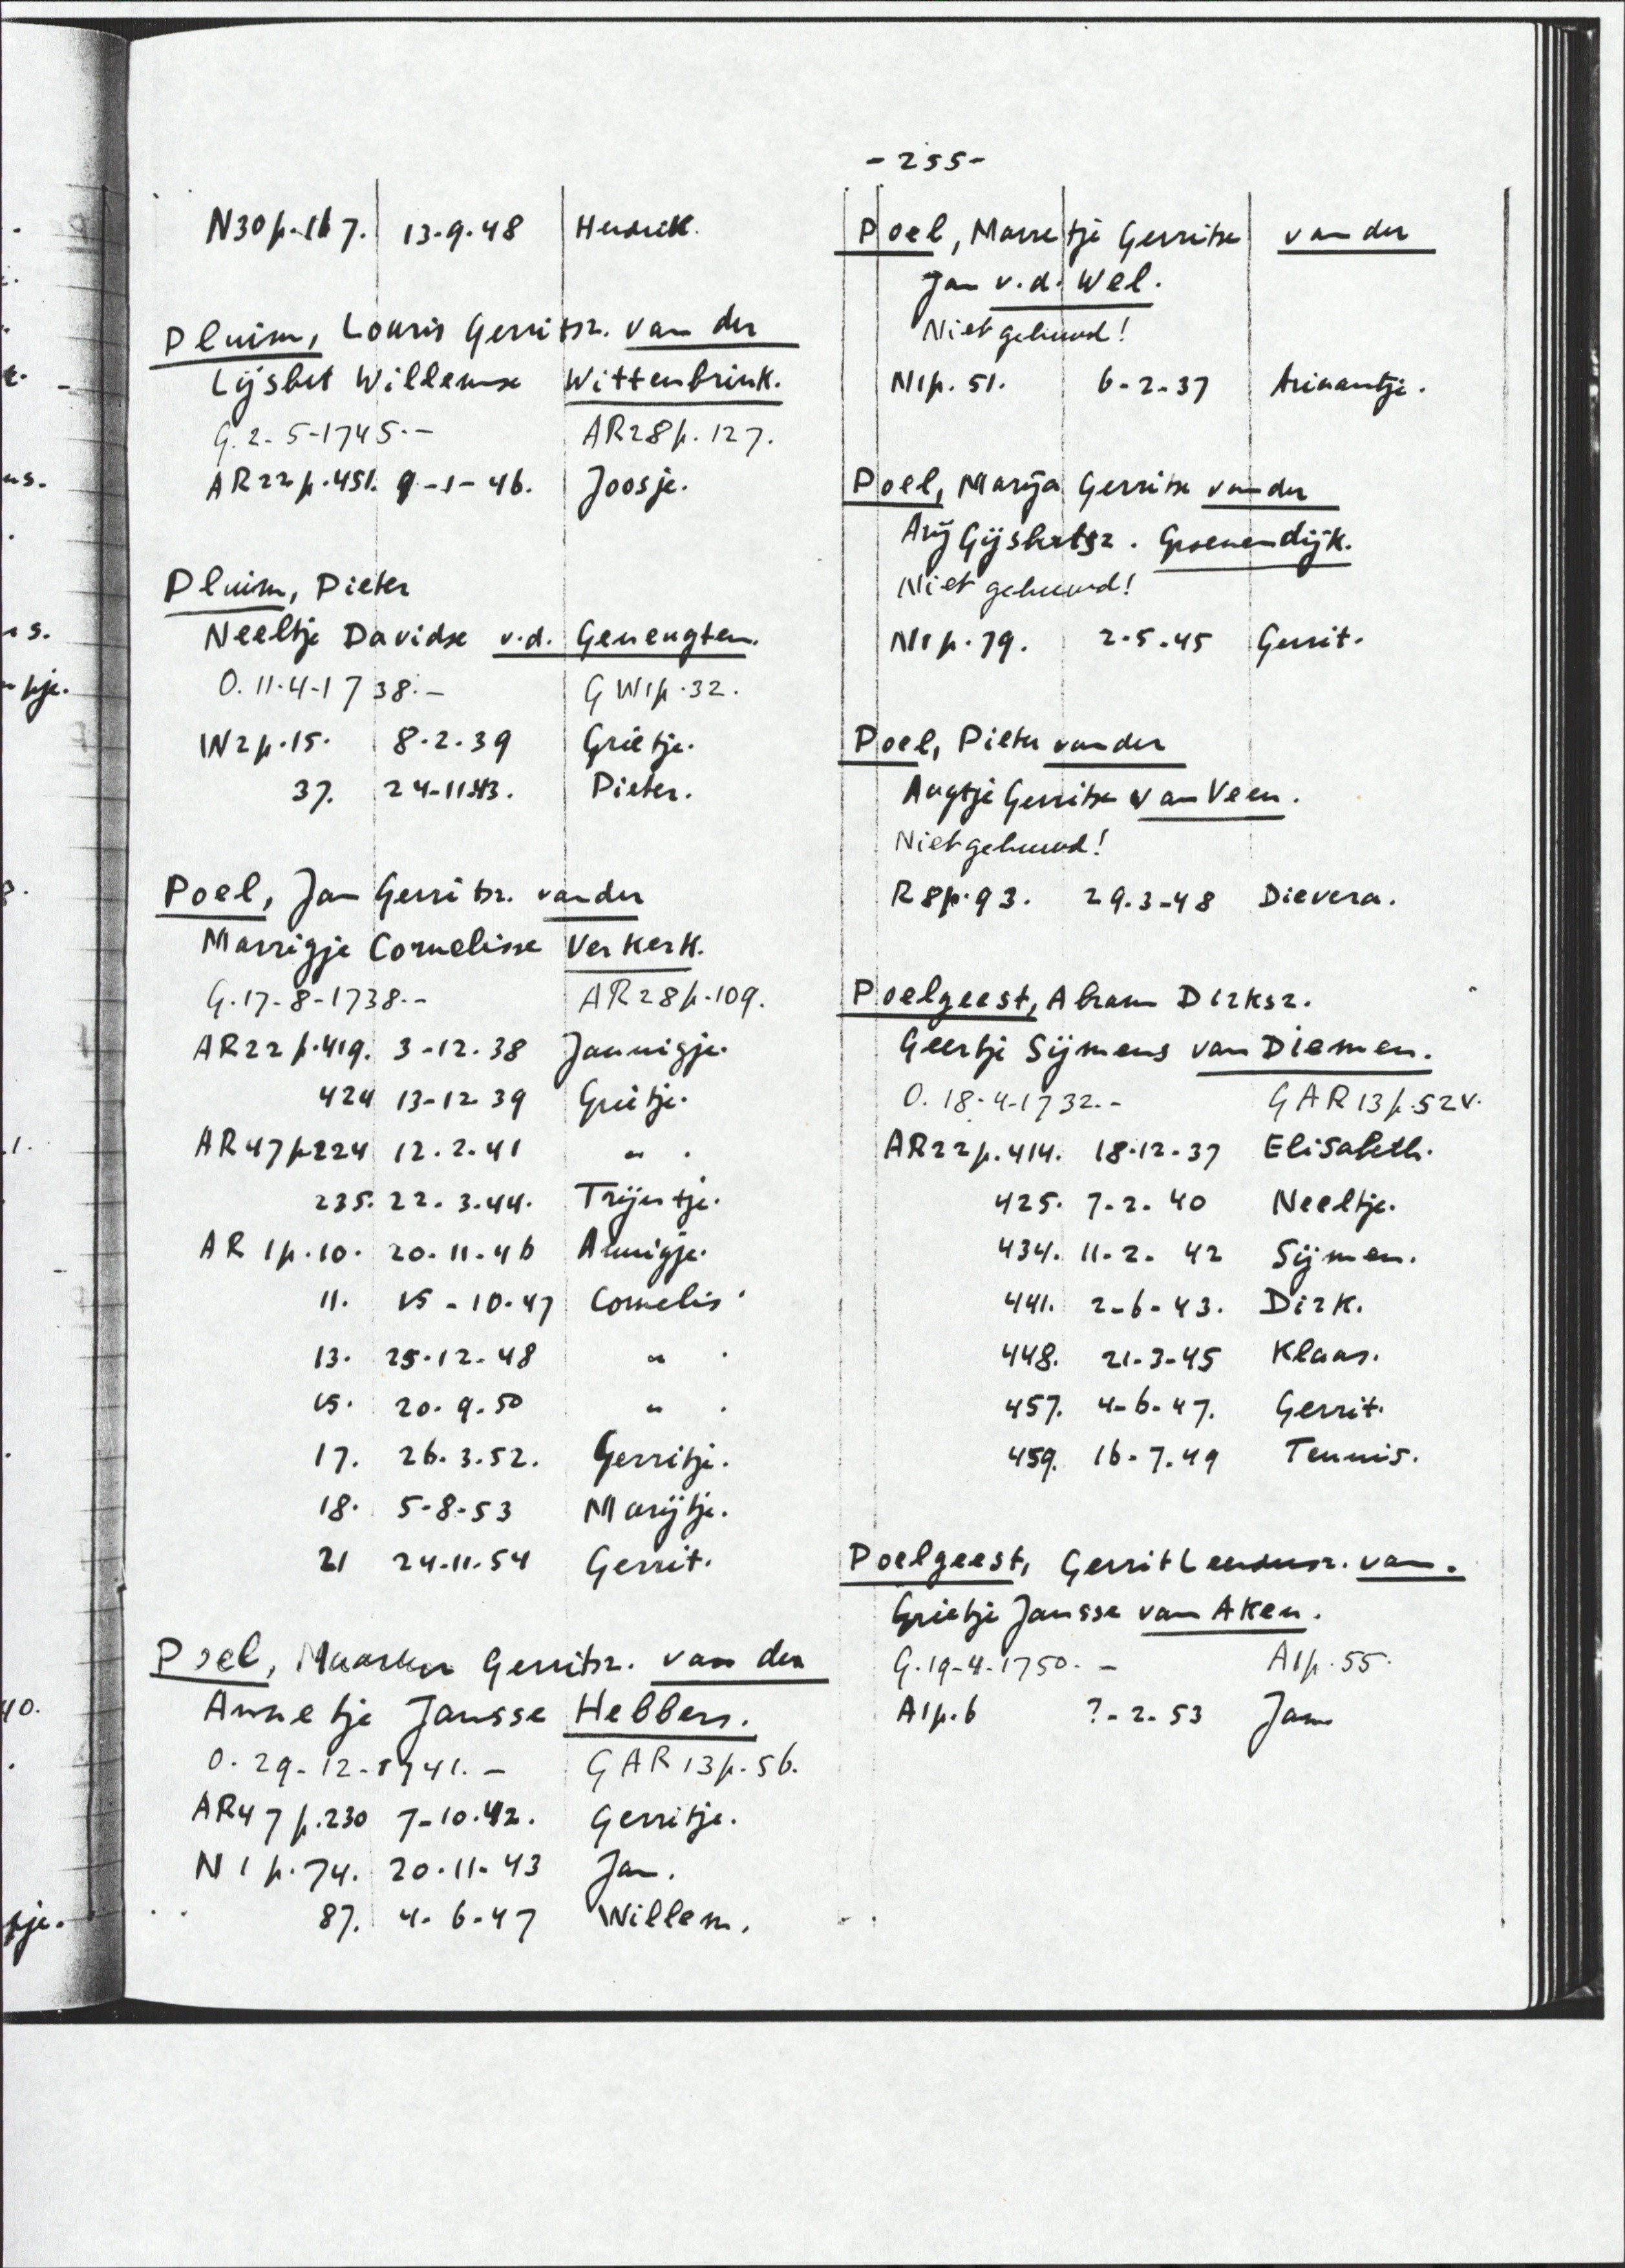 -255-
N30p.167. 13-9-48 Hendrik.
Pluim, Louris Gerritsz. van der
Lijsbet Willemse Wittenbrink.
G. 2-5-1745.- AR28p.127.
AR22p.451. 9-1-46. Joosje.
Pluim, Pieter
Neeltje Davidse v.d. Geneugten.
O. 11-4-1738.- GW1p.32.
W2p.15. 8-2-39 Grietje.
37. 24-11-43. Pieter.
Poel, Jan Gerritsz. van der
Marrigje Cornelisse Verkerk.
G. 17-8-1738.- AR28p.109.
AR22p.419. 3-12-38 Jannigje.
424 13-12-39 Grietje.
AR47p224 12-2-41 " .
235. 22-3-44. Trijntje.
AR1p.10. 20-11-46 Annigje.
11. 15-10-47 Cornelis.
13. 25-12-48 " .
15. 20-9-50 " .
17. 26-3-52. Gerritje.
18. 5-8-53 Marijtje.
21 24-11-54 Gerrit.
Poel, Maarten Gerritsz. van der
Annetje Jansse Hebbers.
O. 29-12-1741.- GAR13p.56.
AR47p.230 7-10-42. Gerritje.
N1p.74. 20-11-43 Jan.
87. 4-6-47 Willem.
Poel, Marretje Gerritse van der
Jan v.d. Wel.
Niet gehuwd!
N1p.51. 6-2-37 Ariaantje.
Poel, Marija Gerritse van der
Arij Gijsbertsz. Groenendijk.
Niet gehuwd!
N1p.79. 2-5-45 Gerrit.
Poel, Pieter van der
Aagtje Gerritse van Veen.
Niet gehuwd!
R8p.93. 29-3-48 Dievera.
Poelgeest, Abram Dirksz.
Geertje Sijmens van Diemen.
O. 18-4-1732.- GAR13p.52v.
AR22p.414. 18-12-37 Elisabeth.
425. 7-2-40 Neeltje.
434. 11-2-42 Sijmen.
441. 2-6-43. Dirk.
448. 21-3-45 Klaas.
457. 4-6-47. Gerrit.
459. 16-7-49 Teunnis.
Poelgeest, Gerrit Leendersz. van.
Grietje Jansse van Aken.
G. 19-4-1750.- A1p.55.
A1p.6 ?-2-53 Jan